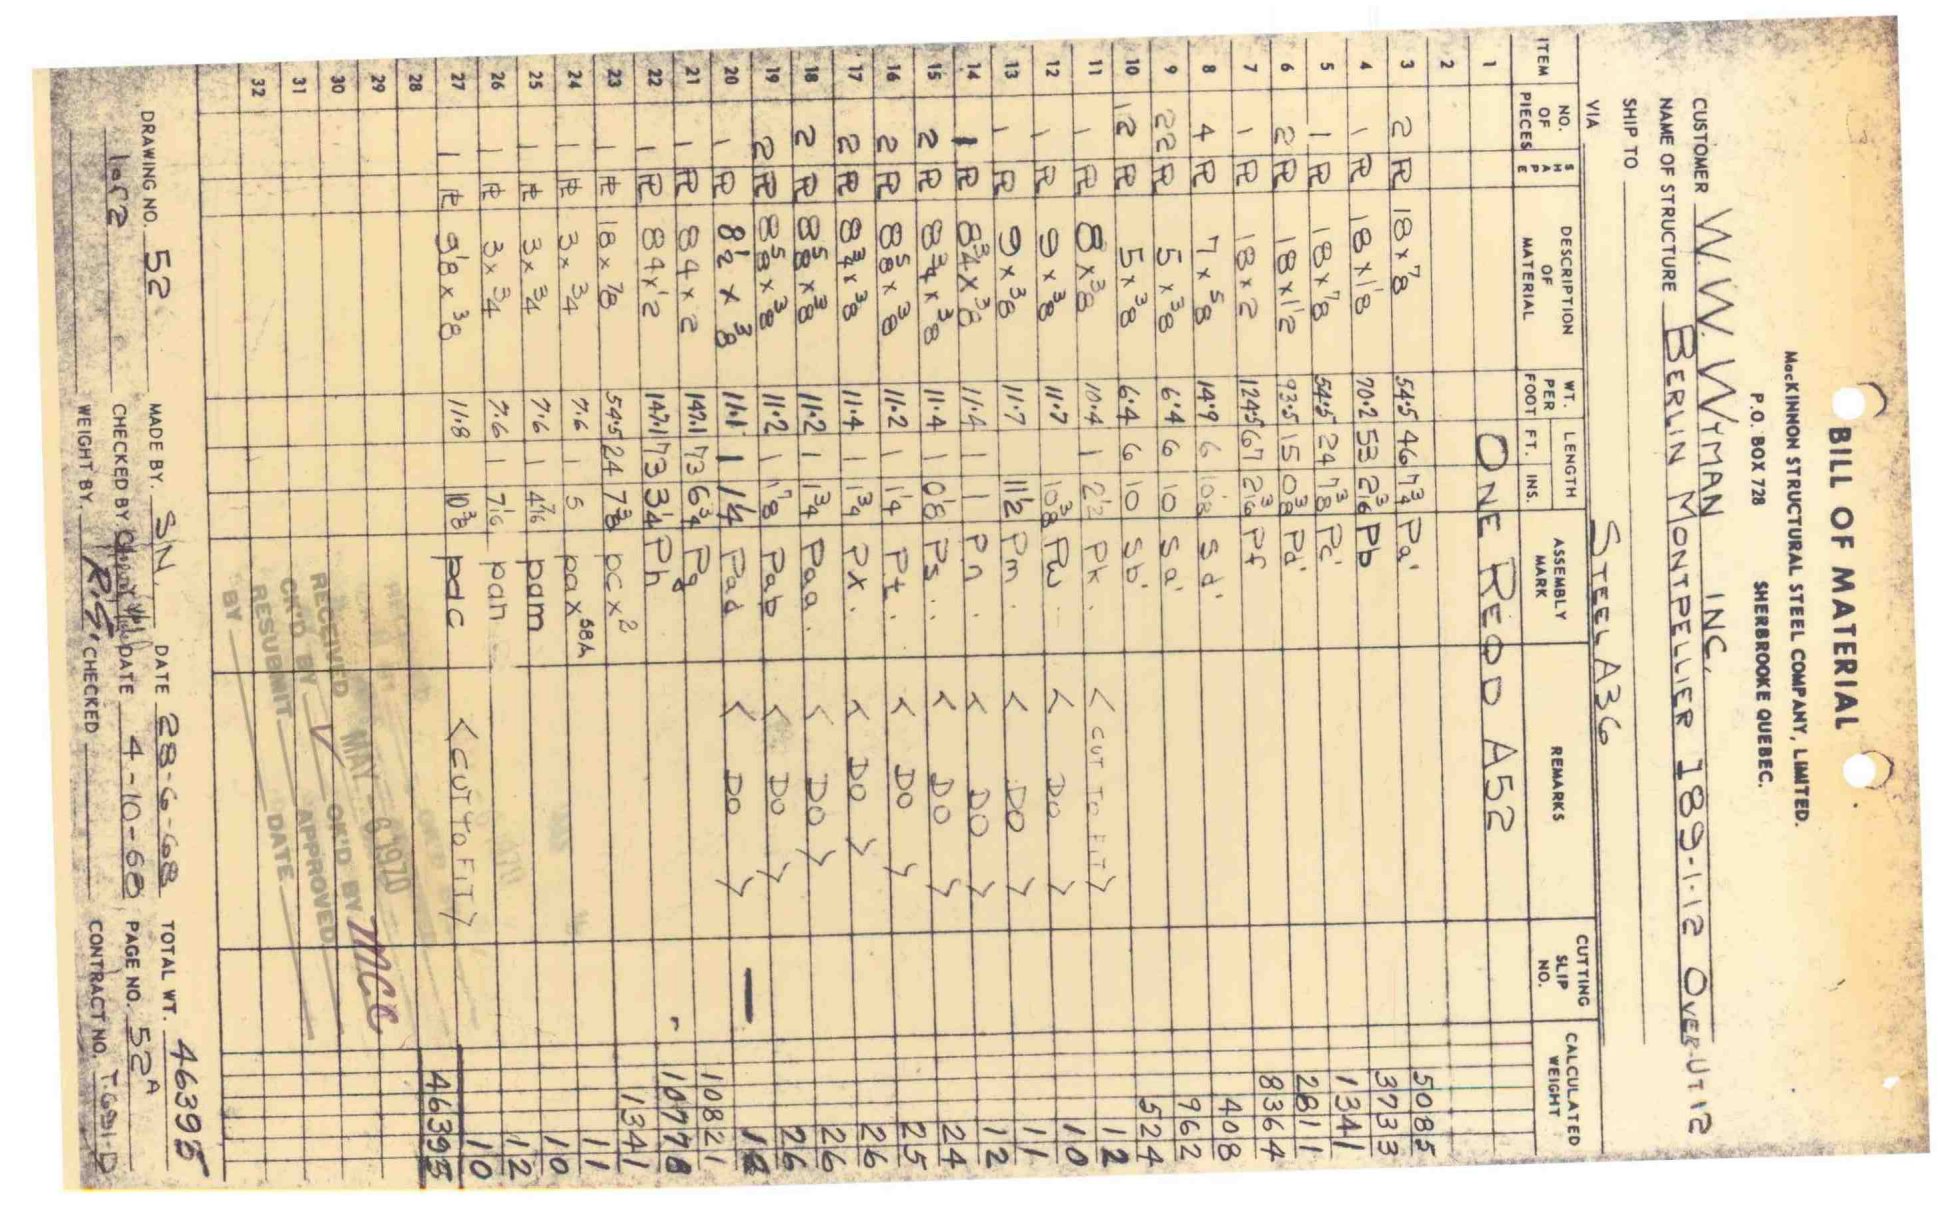 BILL OF MATERIAL
MacKINNON STRUCTURAL STEEL COMPANY, LIMITED.
P.O. BOX 728 SHERBROOKE QUEBEC.
CUSTOMER W.W. WYMAN INC.
NAME OF STRUCTURE BERLIN MONTPELLIER 189-1-12 OVER UT 12
SHIP TO
VIA STEEL A36
ITEM NO. OF PIECES SHAPE DESCRIPTION OF MATERIAL WT. PER FOOT LENGTH FT. INS. ASSEMBLY MARK REMARKS CUTTING SLIP NO. CALCULATED WEIGHT
1 ONE REQD A52
2
3 2 PL 18 x 7/8 54.5 46 7 3/4 Pa' 5085
4 1 PL 18 x 1 1/8 70.2 53 2 3/16 Pb 3733
5 1 PL 18 x 7/8 54.5 24 7 3/8 Pc' 1341
6 2 PL 18 x 1 1/2 93.5 15 0 3/8 Pd' 2811
7 1 PL 18 x 2 124.5 67 2 3/16 Pf 8364
8 4 PL 7 x 5/8 14.9 6 10 1/8 Sd' 408
9 22 PL 5 x 3/8 6.4 6 10 Sa' 962
10 12 PL 5 x 3/8 6.4 6 10 Sb' 524
11 1 PL 8 x 3/8 10.4 1 2 1/2 Pk. < CUT TO FIT > 12
12 1 PL 9 x 3/8 11.7 10 3/8 Pw < DO > 10
13 1 PL 9 x 3/8 11.7 11 1/2 Pm < DO > 11
14 1 PL 8 3/4 x 3/8 11.4 1 1 Pn < DO > 12
15 2 PL 8 3/4 x 3/8 11.4 1 0 1/8 Ps < DO > 24
16 2 PL 8 5/8 x 3/8 11.2 1 1 1/4 Pt. < DO > 25
17 2 PL 8 3/4 x 3/8 11.4 1 1 3/4 Px. < DO > 26
18 2 PL 8 5/8 x 3/8 11.2 1 1 3/4 Paa. < DO > 26
19 2 PL 8 5/8 x 3/8 11.2 1 1 7/8 Pab < DO > 26
20 1 PL 8 1/2 x 3/8 11.1 1 1 1/4 Pad < DO > 12
21 1 PL 84 x 1/2 147.1 73 6 3/4 Pg 10821
22 1 PL 84 x 1/2 147.1 73 3 1/4 Ph 10778
23 1 PL 18 x 7/8 54.5 24 7 3/8 pcx2 1341
24 1 PL 3 x 3/4 7.6 1 5 pax 68A 11
25 1 PL 3 x 3/4 7.6 1 4 7/16 pam 10
26 1 PL 3 x 3/4 7.6 1 7 1/16 pan 12
27 1 PL 9 1/8 x 3/8 11.8 10 3/8 pac < CUT TO FIT > 10
46395
28
29
30
31
32
RECEIVED MAY - 6 1970
CK'D BY OK'D BY MCC
RESUBMIT APPROVED
BY DATE
DRAWING NO. 52 MADE BY. S.N. DATE 28-6-68 TOTAL WT. 46395
1 of 2 CHECKED BY DATE 4-10-68 PAGE NO. 52A
WEIGHT BY. R.S. CHECKED CONTRACT NO. T.691-D